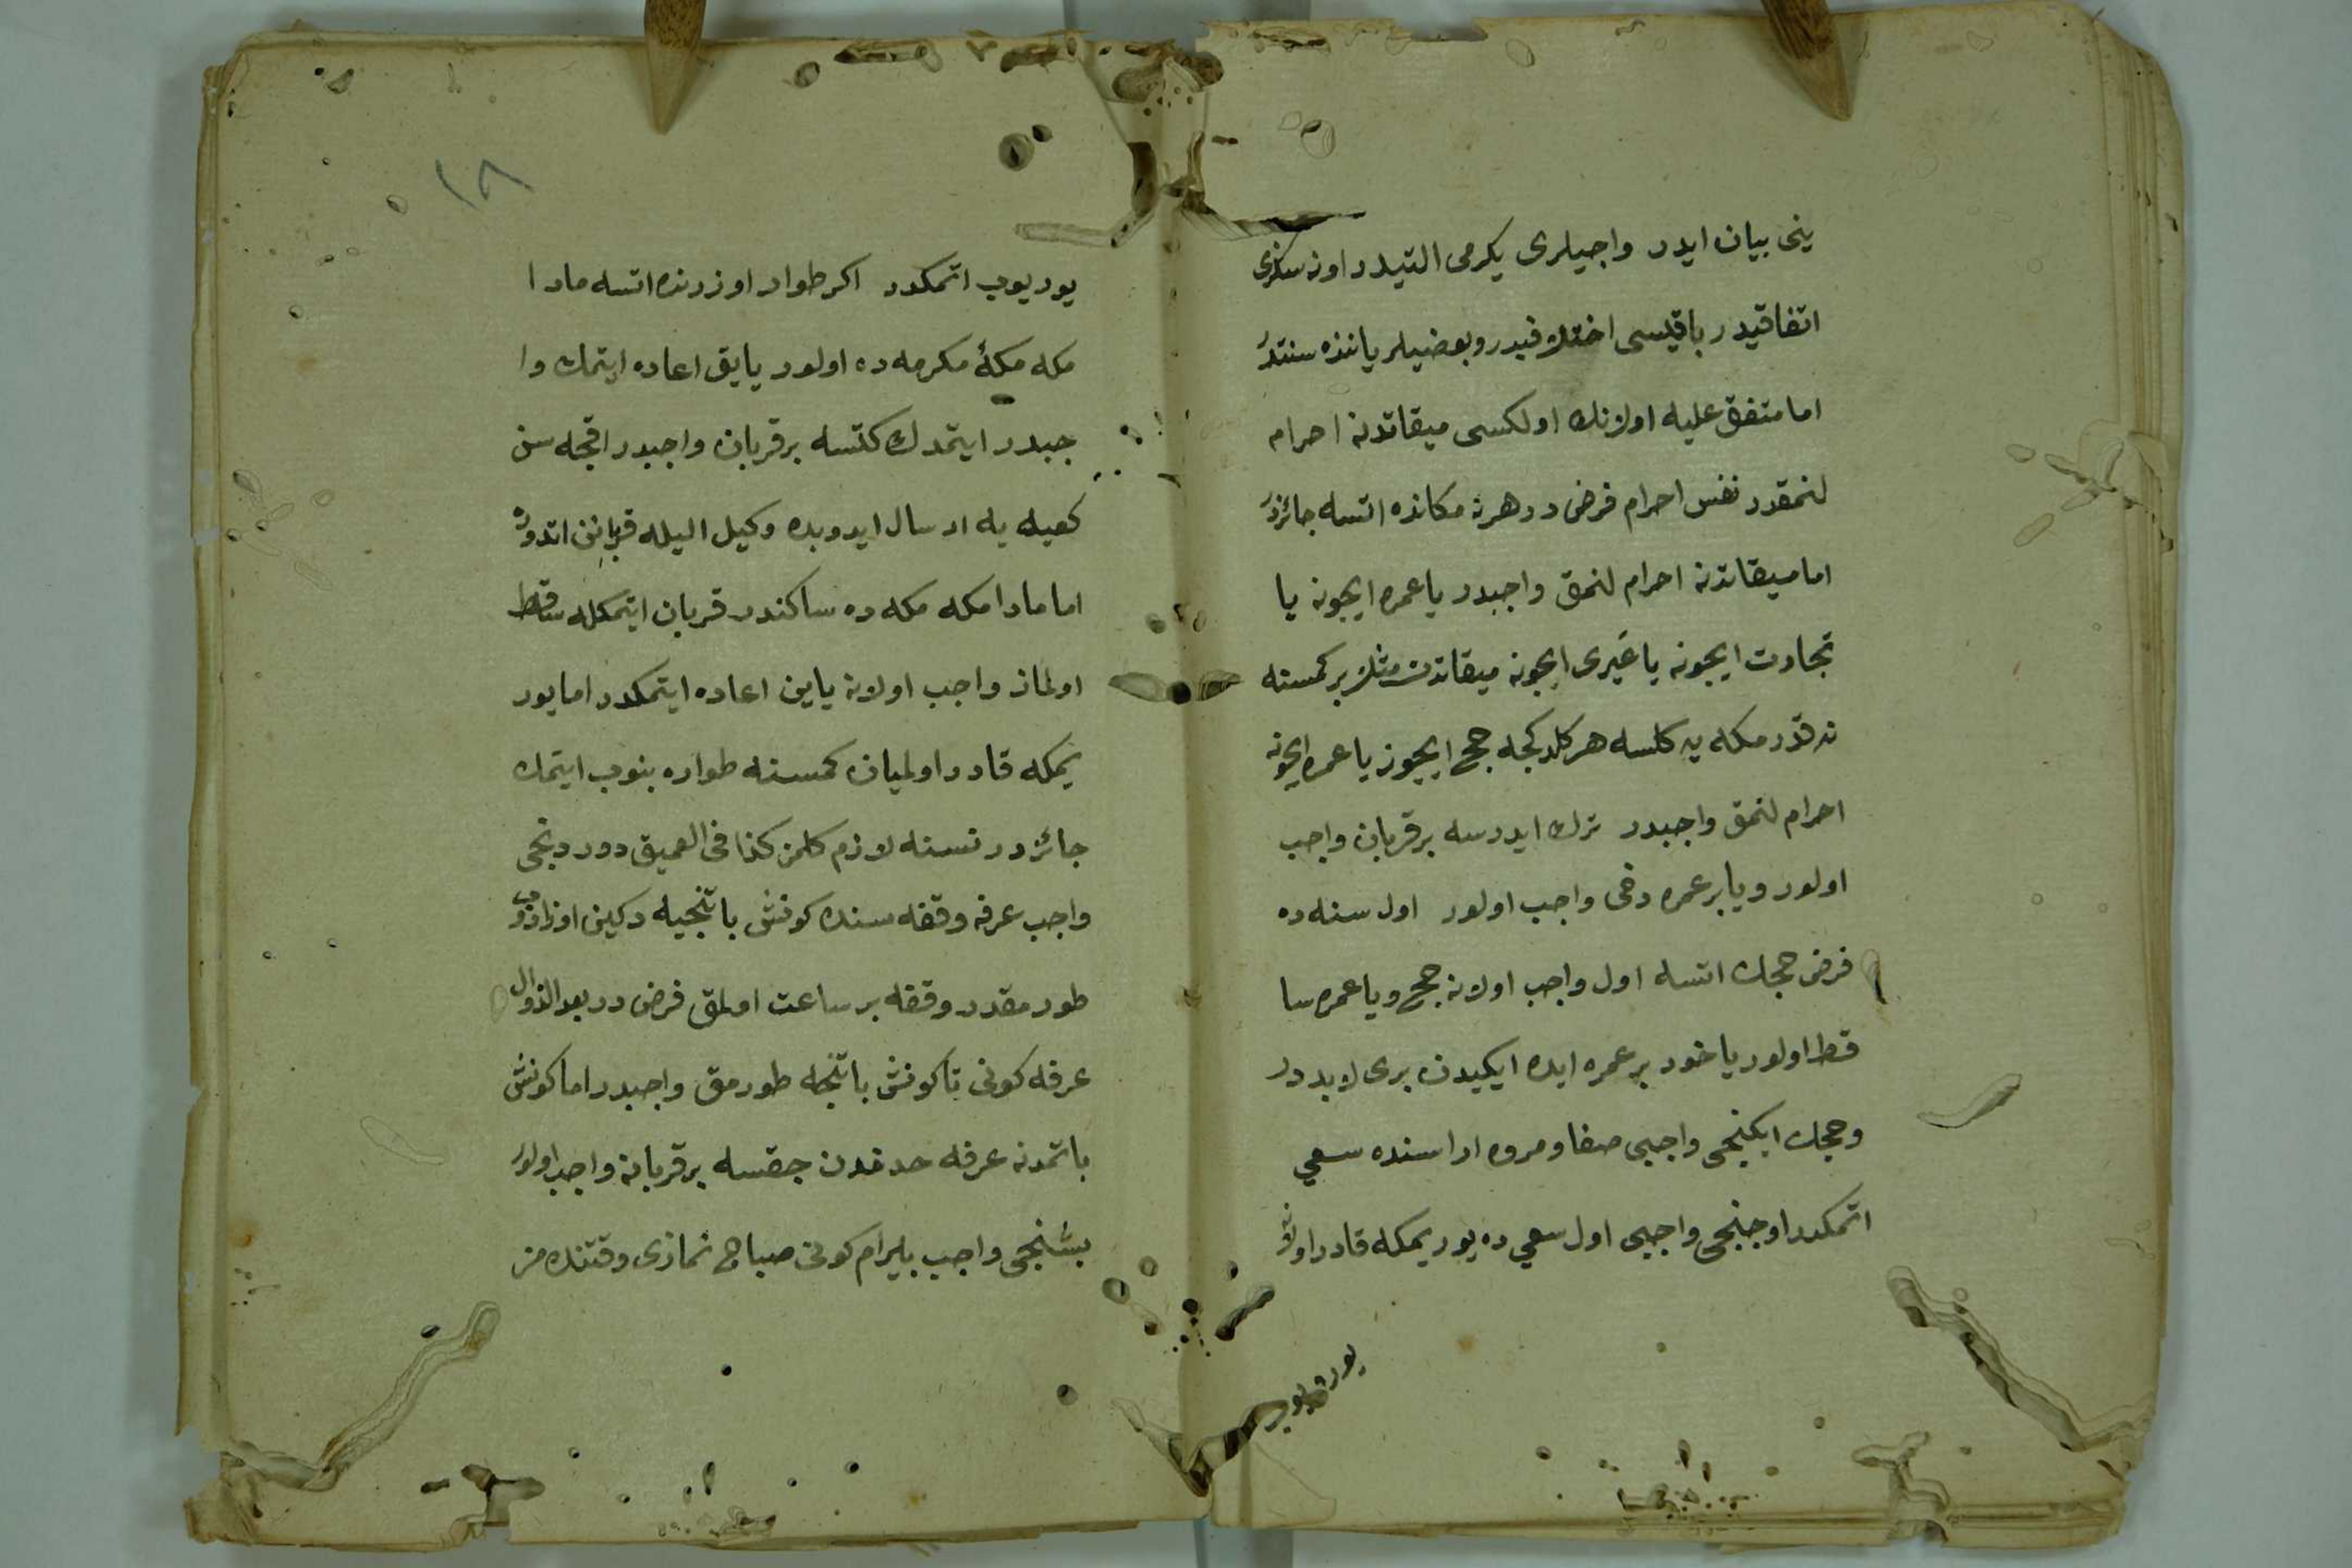 ينى بيان ايدر واجبلرى يكرمى التيدر اون سكزى
اتفاقيدر باقيسى اختلافيدر وبعضيلر ياننده سنتدر
اما متفق عليه اولانك اولكسى ميقاتدن احرام
لنمقدر نفس احرام فرض در هرنه مكانده اتسه جائزدر
اما ميقاتدن احرام لنمق واجبدر يا عمره ايچون يا
تجارت ايچون يا غيرى ايچون ميقاتدن مثلا بر كمسنه
نه قدر مكه يه كلسه هر كلدكجه حج ايچون يا عمره ايچون
احرام لنمق واجبدر ترك ايدرسه بر قربان واجب
اولور ويا بر عمره دخى واجب اولور اول سنه ده
فرض حجك اتسه اول واجب اولان حج ويا عمره سا
قط اولور ياخود بر عمره ايده ايكيدن برى لابد در
وحجك ايكنجى واجبى صفا ومروه اراسنده سعي
اتمكدر اوجنجى واجبى اول سعي ده يوريمكه قادر اولان
يوريوب
١٨
يوريوب اتمكدر اكر طوار اوزرنده اتسه مادا
مكه مكهٔ مكرمه ده اولور يايق اعاده ايتمك وا
جبدر ايتمدك كتسه بر قربان واجبدر اقچه سن
كعبه يه ارسال ايدوبده وكيل اليله قربانن اتدوره
اما مادامكه مكه ده ساكندر قربان ايتمكله ساقط
اولماز واجب اولان ياين اعاده ايتمكدر اما يور
يمكه قادر اولميان كمسنه طواره بنوب ايتمك
جائزدر نسنه لازم كلمز كذا فى العميق دوردنجى
واجب عرفه وقفه سنده كونش باتنجيه دكين اوزادوب
طورمقدر وقفه بر ساعت اولمق فرض در بعد الزوال
عرفه كونى تا كونش باتنجه طورمق واجبدر اما كونش
باتمدن عرفه حدندن چقسه بر قربان واجب اولور
بشنجى واجب بايرام كونى صباح نمازى وقتنده مز